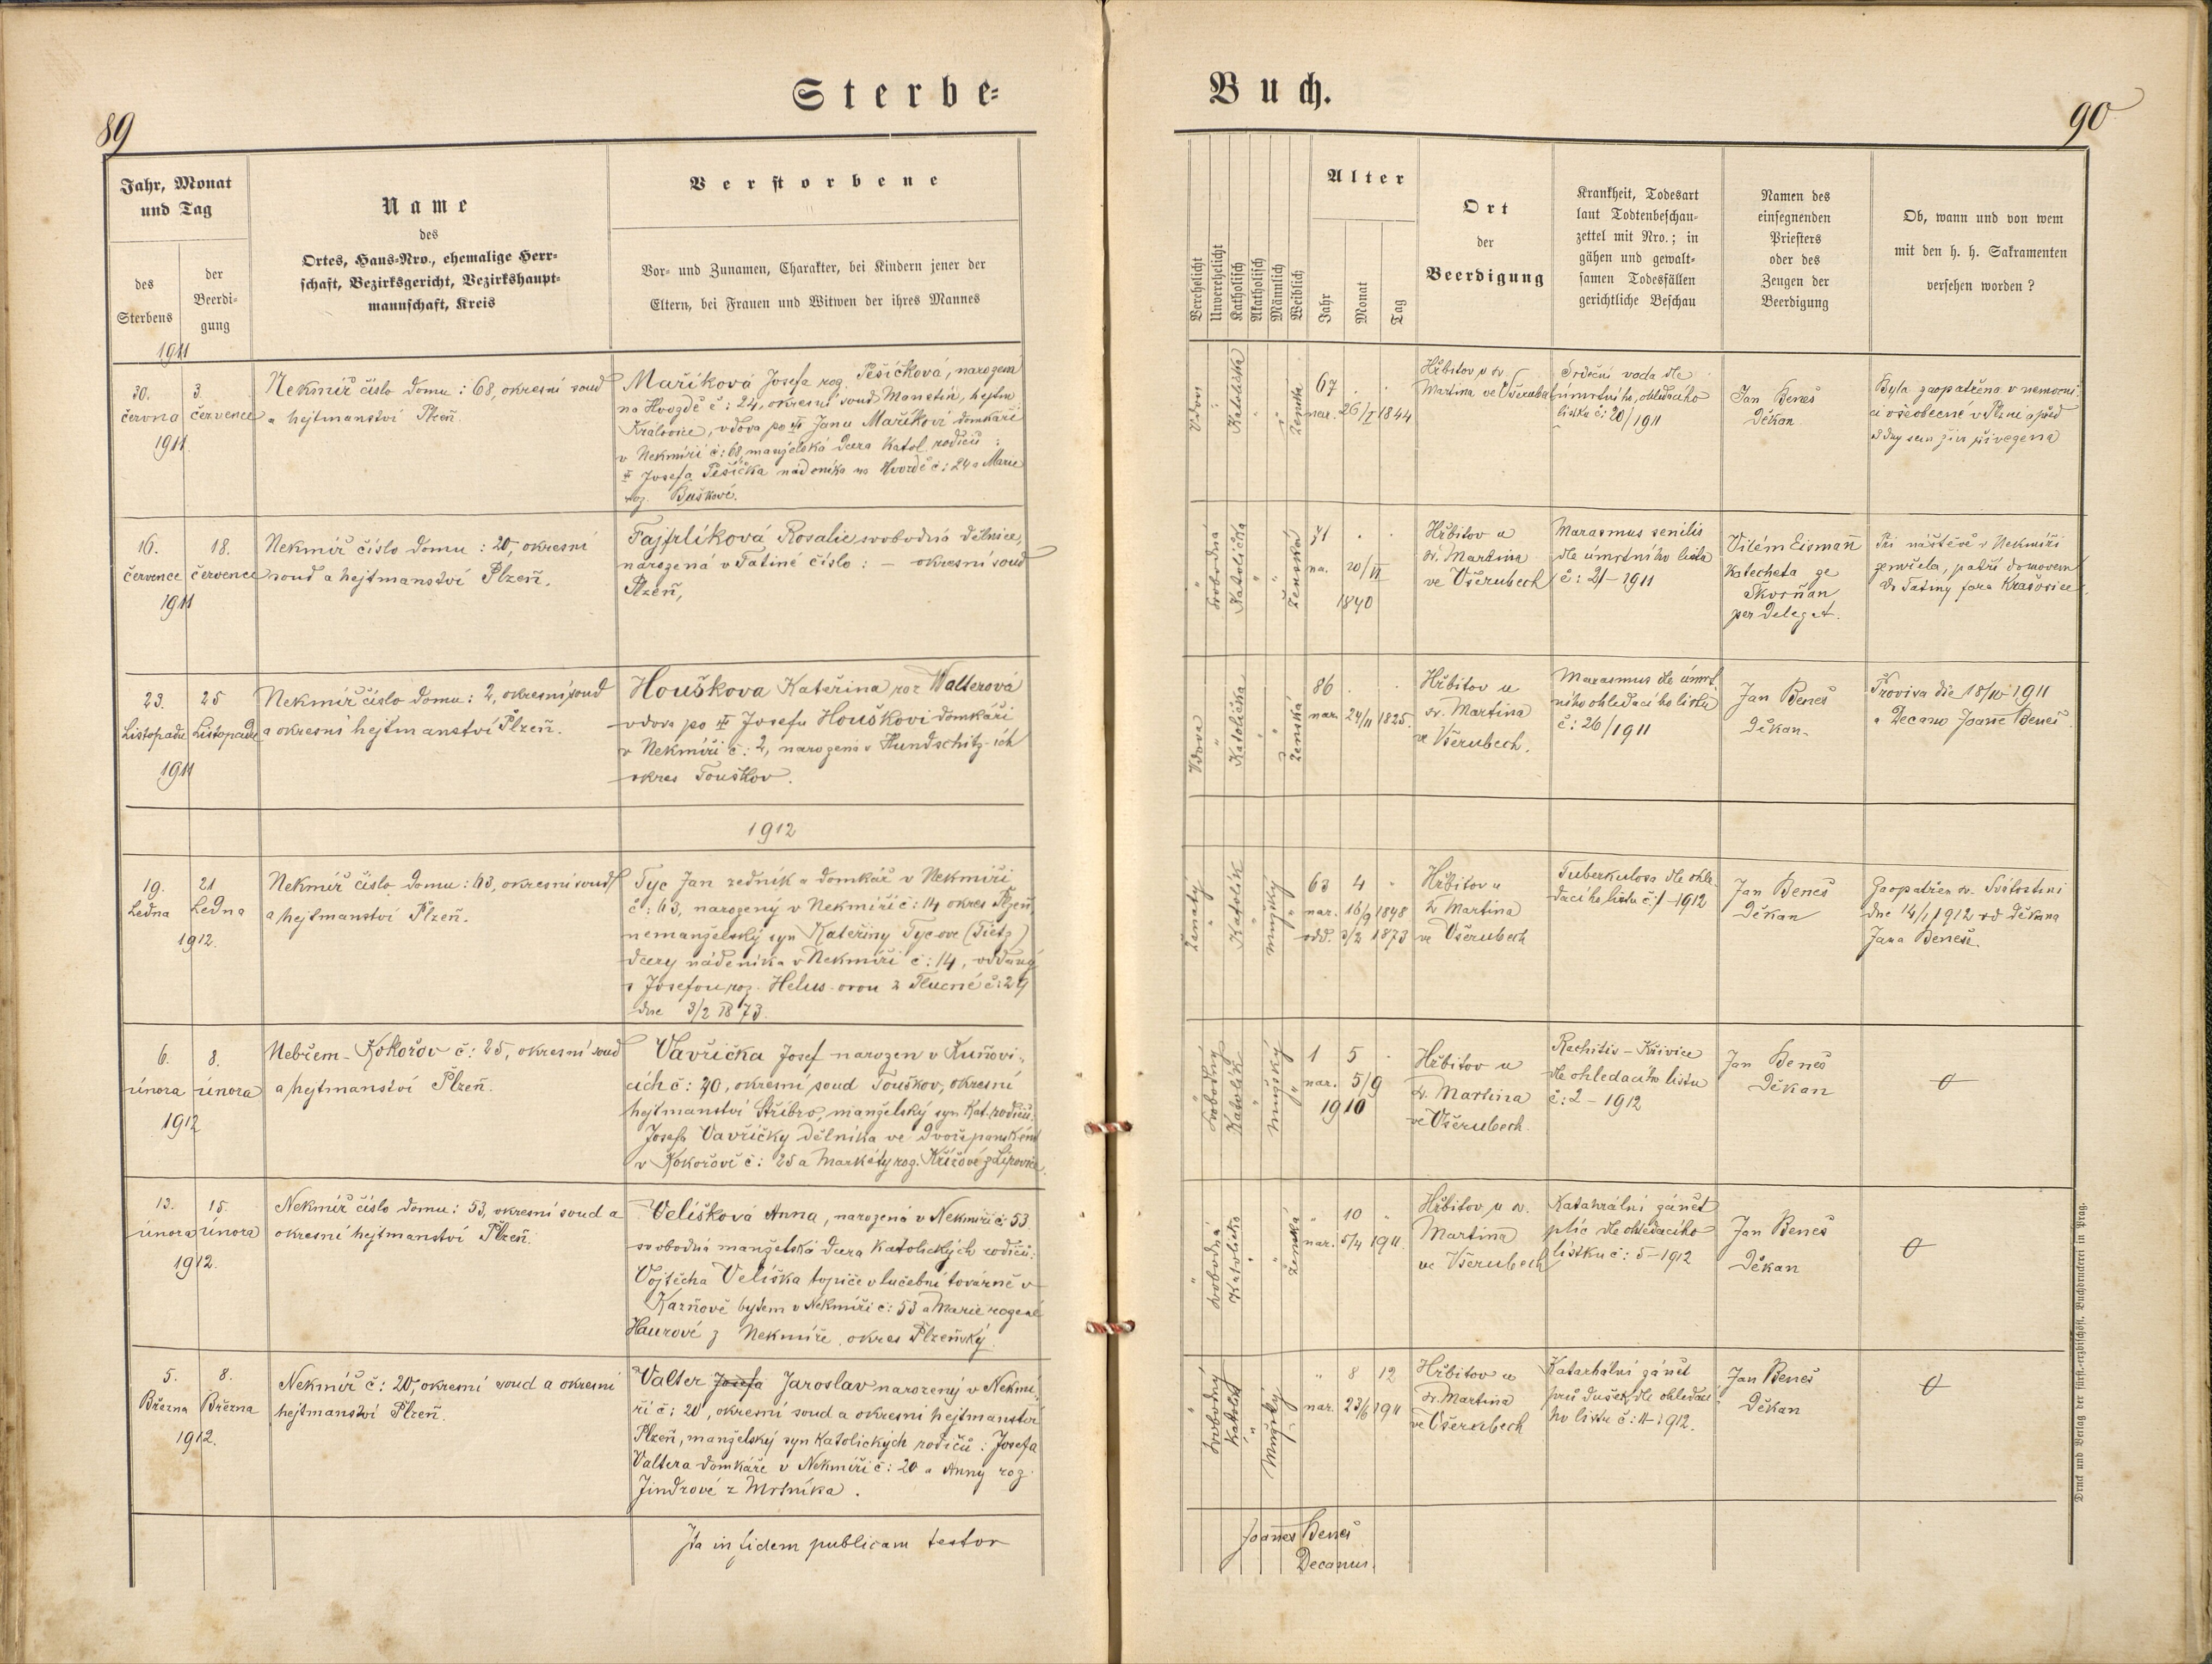 Sterbe=
Buch.
89
90
Jahr, Monat
und Tag
des
Sterbens
der
Beerdi-
gung
Name
des
Ortes, Haus-Nro., ehemalige Herr-
schaft, Bezirksgericht, Bezirkshaupt-
mannschaft, Kreis
Verstorbene
Vor- und Zunamen, Charakter, bei Kindern jener der
Eltern, bei Frauen und Witwen der ihres Mannes
Verehelicht
Unverehelicht
Katholisch
Akatholisch
Männlich
Weiblich
Alter
Jahr
Monat
Tag
Ort
der
Beerdigung
Krankheit, Todesart
laut Todtenbeschau-
zettel mit Nro.; in
gähen und gewalt-
samen Todesfällen
gerichtliche Beschau
Namen des
einsegnenden
Priesters
oder des
Zeugen der
Beerdigung
Ob, wann und von wem
mit den h. h. Sakramenten
versehen worden?
1911
30.
června
1911
3.
července
Nekmíř číslo domu: 68, okresní soud
a hejtmanství Plzeň.
Maříková Josefa roz. Pešíčková, narozená
na Hvozdě č: 24, okresní soud Manětín, hejtm
Kralovice, vdova po Janu Maříkovi domkáři
v Nekmíři č: 68, manželská dcera katol. rodičů:
Josefa Pešíčka nádeníka na Hvozdě č: 24 a Marie
roz. Buškové.
Vdova
Katolička
Ženská
67
nar. 26/I 1844
Hřbitov u sv.
Martina ve Všerubech
Srdeční vada dle
úmrtního, ohledacího
lístku č: 20/1911
Jan Beneš
Děkan
Byla zaopatřena v nemocni-
ci všeobecné v Plzni a před
16.
července
1911
18.
července
Nekmíř číslo domu: 20, okresní
soud a hejtmanství Plzeň.
Fajfrlíková Rosalie svobodná dělnice,
narozená v Tatiné číslo: – okresní soud
Plzeň,
Svobodná
Katolička
Ženská
71
na. 20/VI
1840
Hřbitov u
sv. Martina
ve Všerubech
Marasmus senilis
dle úmrtního lístla
č: 21–1911
Vilém Eismañ
Katecheta ze
Škvrňan
per deleg at.
Při návštěvě v Nekmíři
zemřela, patří domovem
do Tatiny fara Krašovice
23.
Listopadu
1911
25
Listopadu
Nekmíř číslo domu: 2, okresní soud
a okresní hejtmanství Plzeň.
Houškova Kateřina roz Walterová
vdova po Josefu Houškovi domkáři
v Nekmíři č: 2, narozená v Hundschitz-ích
okres Touškov.
Vdova
Katolička
Ženská
86
nar. 24/11 1825.
Hřbitov u
sv. Martina
ve Všerubech.
Marasmus dle úmrt-
ního ohledacího lístku
č: 26/1911
Jan Beneš
Děkan
Provisa die 18/10 1911
a Decano Joane Beneš
1912
19.
Ledna
1912.
21
Ledna
Nekmíř číslo domu: 63, okresní soud
a hejtmanství Plzeň.
Tyc Jan zedník a domkář v Nekmíři
č: 63, narozený v Nekmíři č: 14 okres Plzeň,
nemanželský syn Kateřiny Tycove (Tietz)
dcery nádeníka v Nekmíři č: 14, oddaný
s Josefou roz. Helus-ovou z Tlucné č: 29
dne 3/2 1873.
Ženatý
Katolík
Mužský
63 4
nar. 16/9 1848
odd. 3/2 1873
Hřbitov u
sv Martina
ve Všerubech
Tuberkulosa dle ohle-
dacího listu č: 1–1912
Jan Beneš
Děkan
Zaopatřen sv. Svátostmi
dne 14/1 1912 od děkana
Jana Beneše.
6.
února
1912
8.
února
Nebřem-Kokořov č: 25, okresní soud
a hejtmanství Plzeň.
Vavřička Josef narozen v Kuňovi-
cích č: 40, okresní soud Touškov, okresní
hejtmanství Stříbro, manželský syn Kat. rodičů:
Josefa Vavřičky dělníka ve dvoře panském
v Kokořově č: 25 a Markéty roz. Křížové z Lipovice
Svobodný
Katolík
Mužský
1 5
nar. 5/9
1910
Hřbitov u
sv. Martina
ve Všerubech.
Rachitis – Křivice
dle ohledacího listu
č: 2 – 1912
Jan Beneš
Děkan
13.
února
1912.
15.
února
Nekmíř číslo domu: 53, okresní soud a
okresní hejtmanství Plzeň.
Velíšková Anna, narozená v Nekmíři č: 53
svobodná manželská dcera katolických rodičů:
Vojtěcha Velíška topiče v lučební továrně v
Kazňově bytem v Nekmíři č: 53 a Marie rozené
Haurové z Nekmíře, okres Plzeňský
Svobodná
Katolička
Ženská
10
nar. 5/4 1911.
Hřbitov u sv.
Martina
ve Všerubech
Katahrální zánět
plic dle ohledacího
lístku č: 5–1912
Jan Beneš
Děkan
5.
Března
1912.
8.
Března
Nekmíř č: 20, okresní soud a okresní
hejtmanství Plzeň.
Valter Josefa Jaroslav narozený v Nekmí-
ři č: 20, okresní soud a okresní hejtmanství
Plzeň, manželský syn katolických rodičů: Josefa
Valtera domkáře v Nekmíři č: 20 a Anny roz
Jindrové z Mrtníka.
Svobodný
Katolík
Mužský
8 12
nar. 23/6 1911
Hřbitov u
sv. Martina
ve Všerubech
Katarhální zánět
průdušek, dle ohledací-
ho listu č: 11–1912.
Jan Beneš
Děkan
Ita in fidem publicam testor
Joannes Beneš
Decanus.
Druck und Verlag der fürst.-erzbischöfl. Buchdruckerei in Prag.